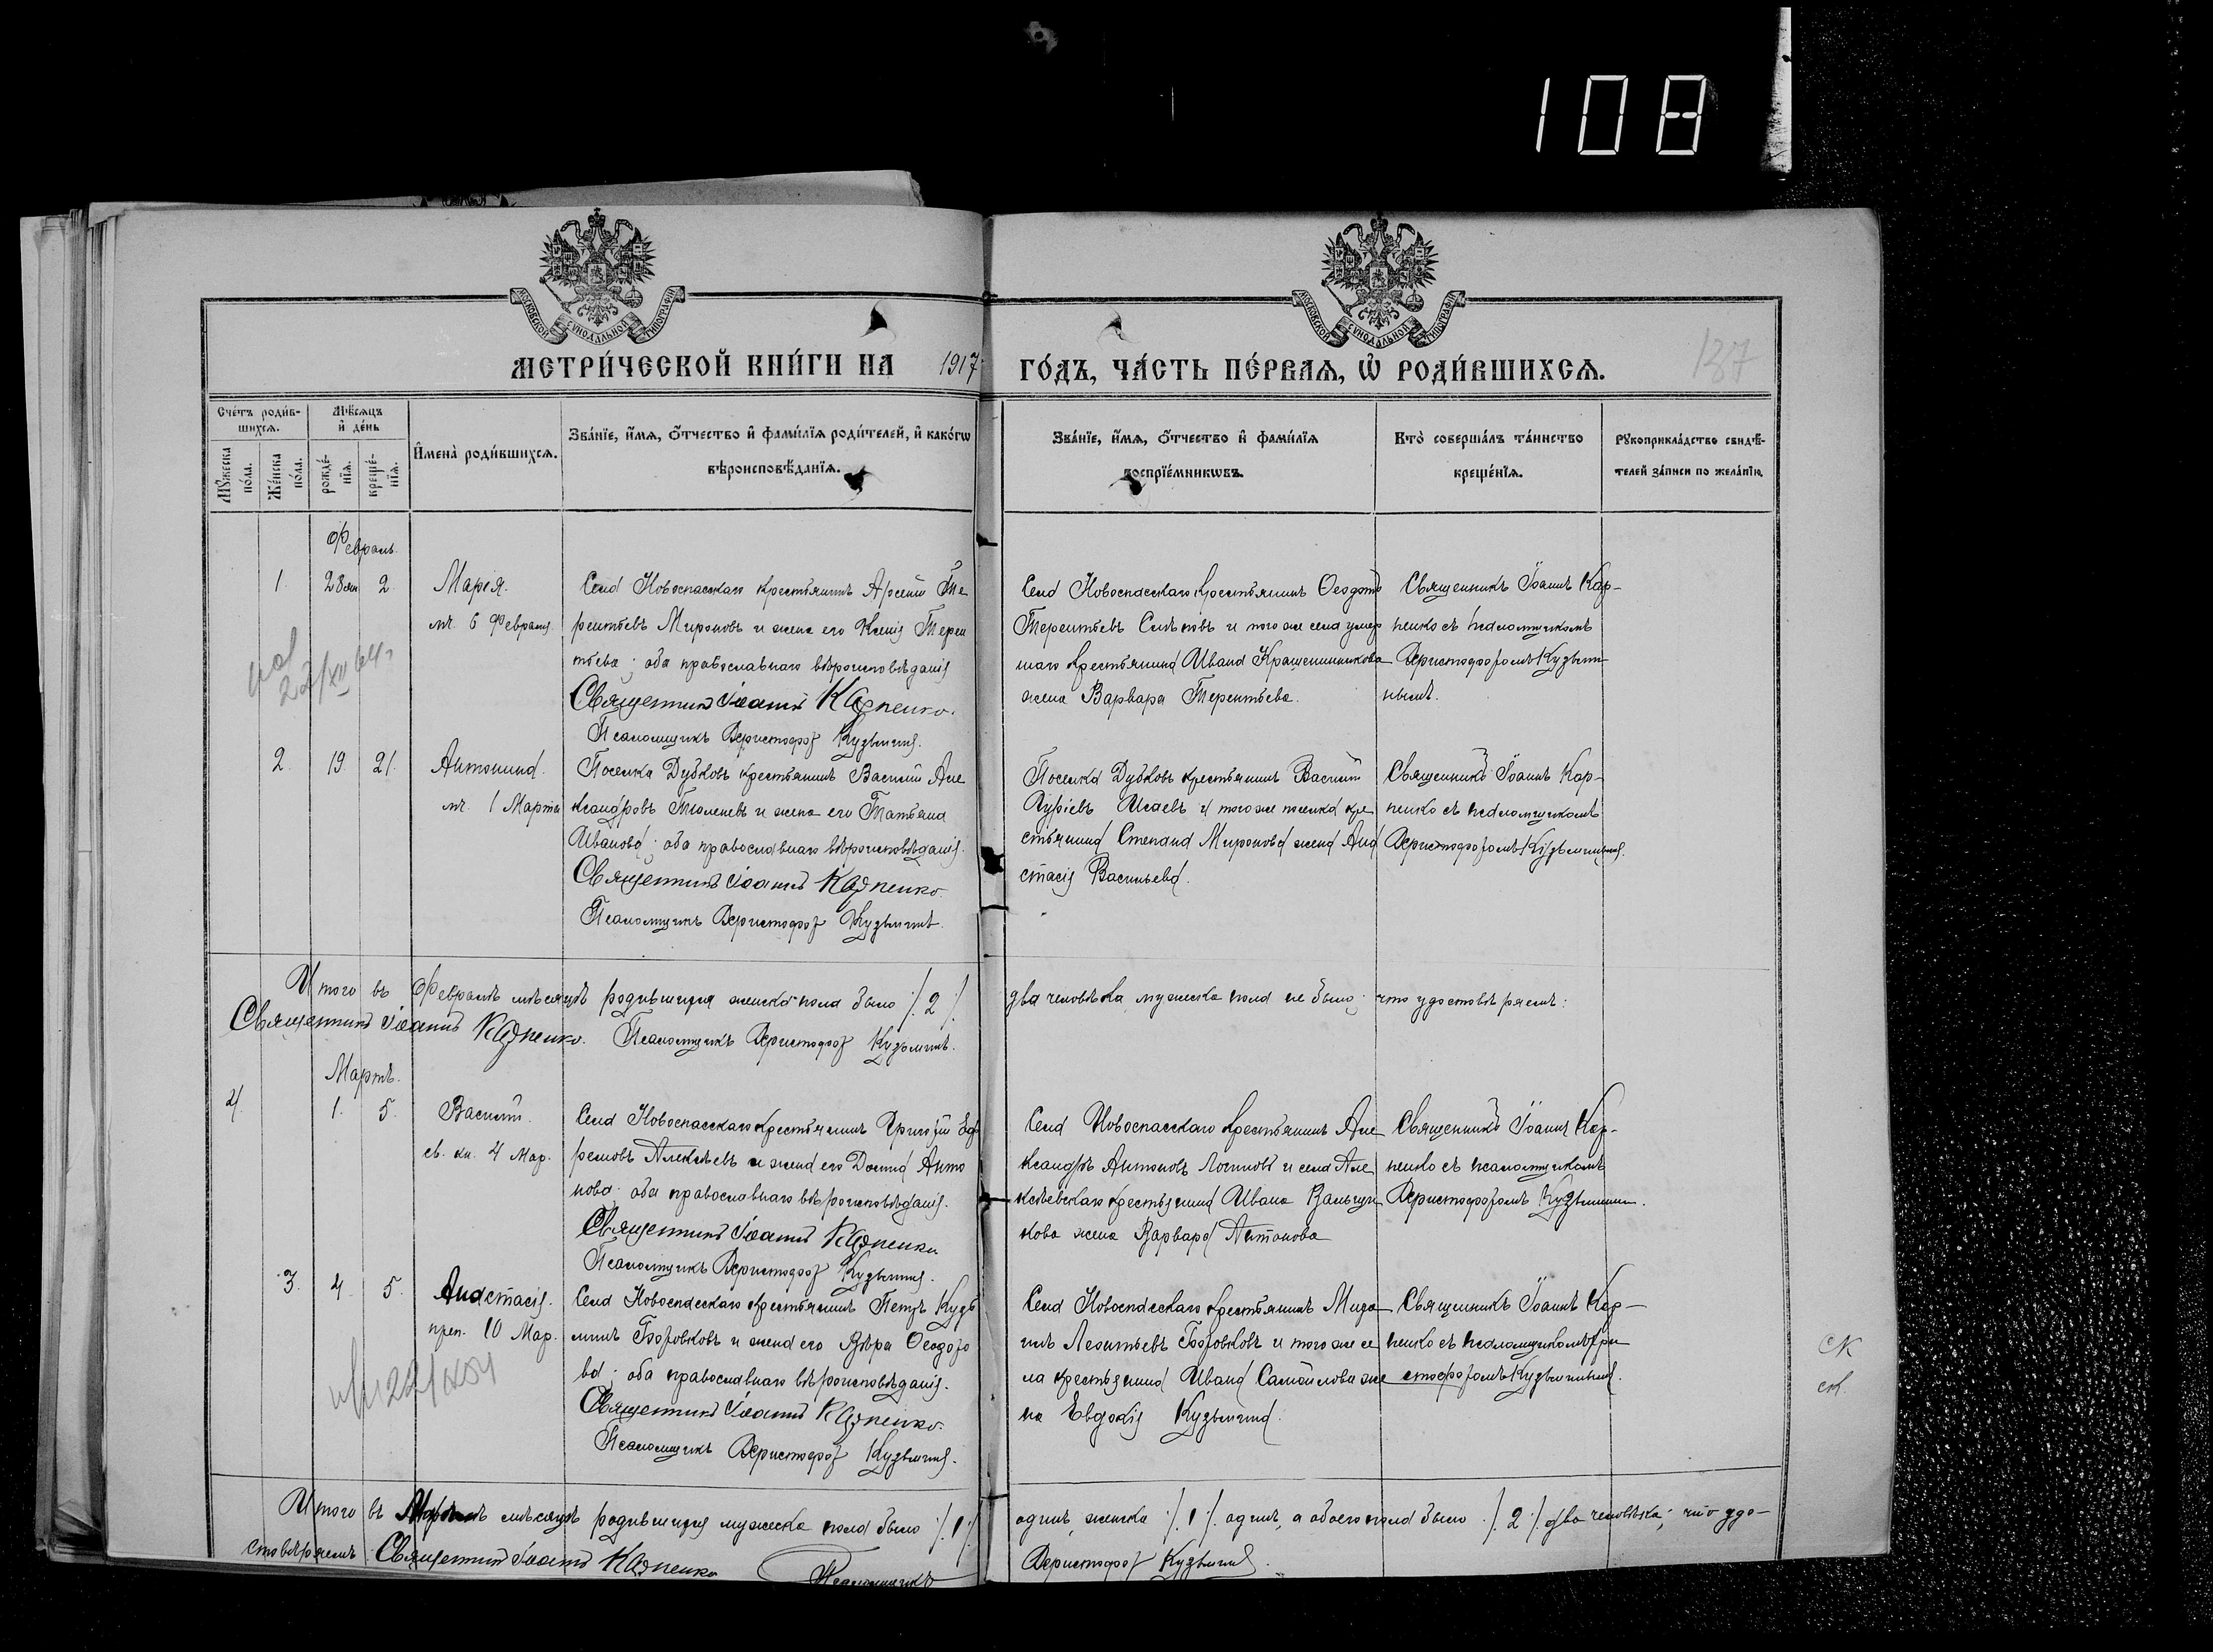 108
МОСКОВСКОЙ СѴНОДАЛЬНОЙ ТИПОГРАФІИ
МОСКОВСКОЙ СѴНОДАЛЬНОЙ ТИПОГРАФІИ
МЕТРИ́ЧЕСКОЙ КНИ́ГИ НА 1917 ГО́ДЪ, ЧА́СТЬ ПЕ́РВАѦ, Ѡ҆ РОДИ́ВШИХСѦ.
137
Сче́тъ роди́в-
шихсѧ.
Мꙋ́жеска по́ла.
Же́нска по́ла.
Мѣ́сѧцъ и҆ де́нь
рожде́-
нїѧ.
креще́-
нїѧ.
И҆мена̀ роди́вшихсѧ.
Зва́нїе, и҆́мѧ, ѻ҆́тчество и҆ фами́лїѧ роди́телей, и҆ како́гѡ
вѣроисповѣ́данїѧ.
Зва́нїе, и҆́мѧ, ѻ҆́тчество и҆ фами́лїѧ
воспрїе́мникѡвъ.
Кто̀ соверша́лъ та́инство
креще́нїѧ.
Рꙋкоприкла́дство свидѣ́-
телей за́писи по жела́нїю.
Февраль.
1. 28 ян 2. Марія.
мч. 6 Февраля.
Села Новоспасскаго крестьянинъ Арсеній Те
рентьевъ Мироновъ и жена его Ксенія Терен
тьева; оба православнаго вѣроисповѣданія
Священникъ Іоаннъ Карпенко.
Псаломщикъ Христофор Кузьминъ.
Села Новоспасскаго крестьянинъ Ѳеодотъ
Терентьевъ Слѣповъ и того же села умер
шаго крестьянина Ивана Крашенинникова
жена Варвара Терентьева.
Священникъ Іоаннъ Кар-
пенко съ псаломщикомъ
Христофоромъ Кузьми-
нымъ.
2. 19. 21. Антонина.
мч. 1 Марта
Поселка Дубковъ крестьянинъ Василій Але
ксандровъ Тюленевъ и жена его Татьяна
Иванова; оба православнаго вѣроисповѣданія.
Священникъ Іоаннъ Карпенко.
Псаломщикъ Христофор Кузьминъ.
Поселка Дубковъ крестьянинъ Василій
Гурьевъ Исаевъ и того же поселка кре
стьянина Степана Миронова жена Ана
стасія Васильева.
Священникъ Іоаннъ Кар-
пенко съ псаломщикомъ
Христофоромъ Кузьминымъ.
Итого въ Февралѣ мѣсяцѣ родившихся женска пола было /. 2 ./ два человѣка, мужеска пола не было; что удостовѣряемъ:
Священникъ Іоаннъ Карпенко. Псаломщикъ Христофор Кузьминъ.
Мартъ.
4. 1. 5. Василій.
св. кн. 4 Мар.
Села Новоспасскаго крестьянинъ Григорій Еф
ремовъ Алексѣевъ и жена его Домна Анто
нова; оба православнаго вѣроисповѣданія.
Священникъ Іоаннъ Карпенко
Псаломщикъ Христофор Кузьминъ.
Села Новоспасскаго крестьянинъ Але
ксандръ Антоновъ Логиновъ и села Але
ксѣевскаго крестьянина Ивана
кова жена Варвара Антонова
Священникъ Іоаннъ Кар-
пенко съ псаломщикомъ
Христофоромъ Кузьминым.
3. 4. 5. Анастасія.
преп. 10 Мар.
Села Новоспасскаго крестьянинъ Петръ Кузь
минъ Боровковъ и жена его Вѣра Ѳеодоро
ва; оба православнаго вѣроисповѣданія.
Священникъ Іоаннъ Карпенко.
Псаломщикъ Христофор Кузьминъ.
Села Новоспасскаго крестьянинъ Миро
нъ Леонтьевъ Боровковъ и того же се
ла крестьянина Ивана Самойлова же
на Евдокія Кузьмина.
Священникъ Іоаннъ Кар-
пенко съ псаломщикомъ Хри
стофоромъ Кузьминымъ.
Итого въ Мартѣ мѣсяцѣ родившихся мужеска пола было /. 1 ./ одинъ, женска /. 1 ./. одинъ, а обоего пола было /. 2 ./. два человѣка; что удо-
стовѣряемъ: Священникъ Іоаннъ Карпенко Псаломщикъ Христофор Кузьминъ.